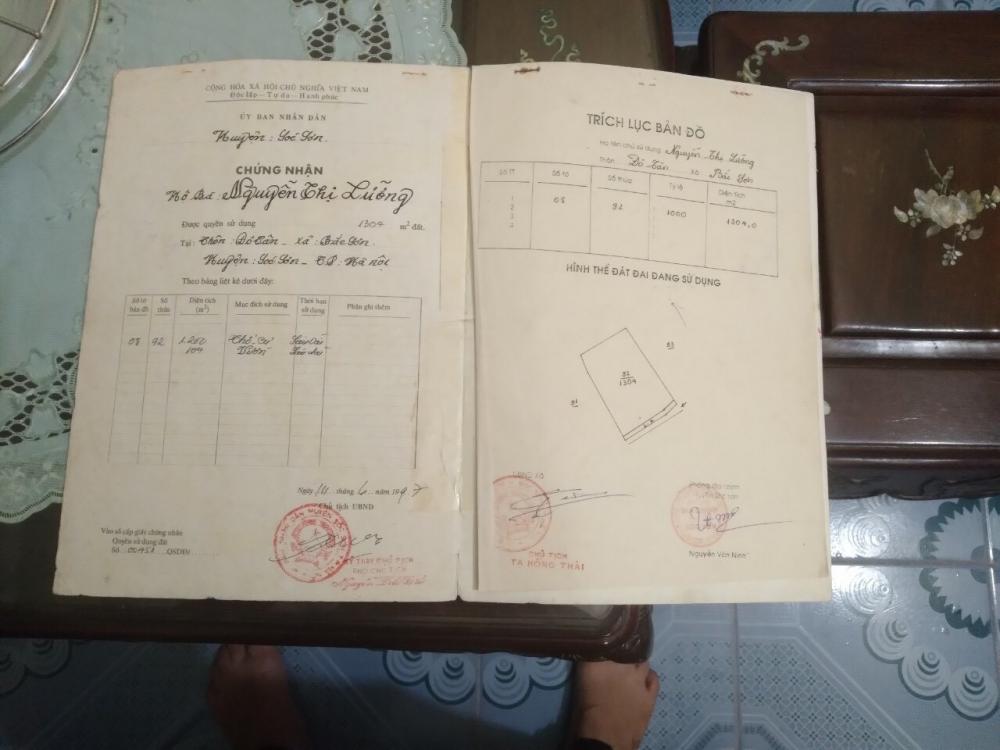 CỘNG HÒA XÃ HỘI CHỦ NGHĨA VIỆT NAM
Độc lập - Tự do - Hạnh phúc
ỦY BAN NHÂN DÂN
Huyện: Sóc Sơn
CHỨNG NHẬN
Hộ Bà: Nguyễn Thị Lưỡng
Được quyền sử dụng 1304 m² đất.
Tại: Thôn: Đô Tân - Xã: Bắc Sơn.
Huyện: Sóc Sơn - T.P: Hà Nội
Theo bảng liệt kê dưới đây:
Số tờ bản đồ Số thửa Diện tích (m²) Mục đích sử dụng Thời hạn sử dụng Phần ghi thêm
08 92 1.200 Thổ cư Lâu dài
104 Vườn
Ngày tháng 6 năm 1997
Chủ tịch UBND
Vào sổ cấp giấy chứng nhận
Quyền sử dụng đất
Số 00451 QSDĐ/
KÝ THAY CHỦ TỊCH
PHÓ CHỦ TỊCH
TRÍCH LỤC BẢN ĐỒ
Họ tên chủ sử dụng Nguyễn Thị Lưỡng
Thôn Đô Tân Xã Bắc Sơn
Số TT Số tờ Số thửa Tỷ lệ Diện tích m2
1 08 92 1000 1304,0
2
3
HÌNH THỂ ĐẤT ĐAI ĐANG SỬ DỤNG
1304
UBND XÃ
CHỦ TỊCH
TẠ HỒNG THÁI
Nguyễn Văn Ninh